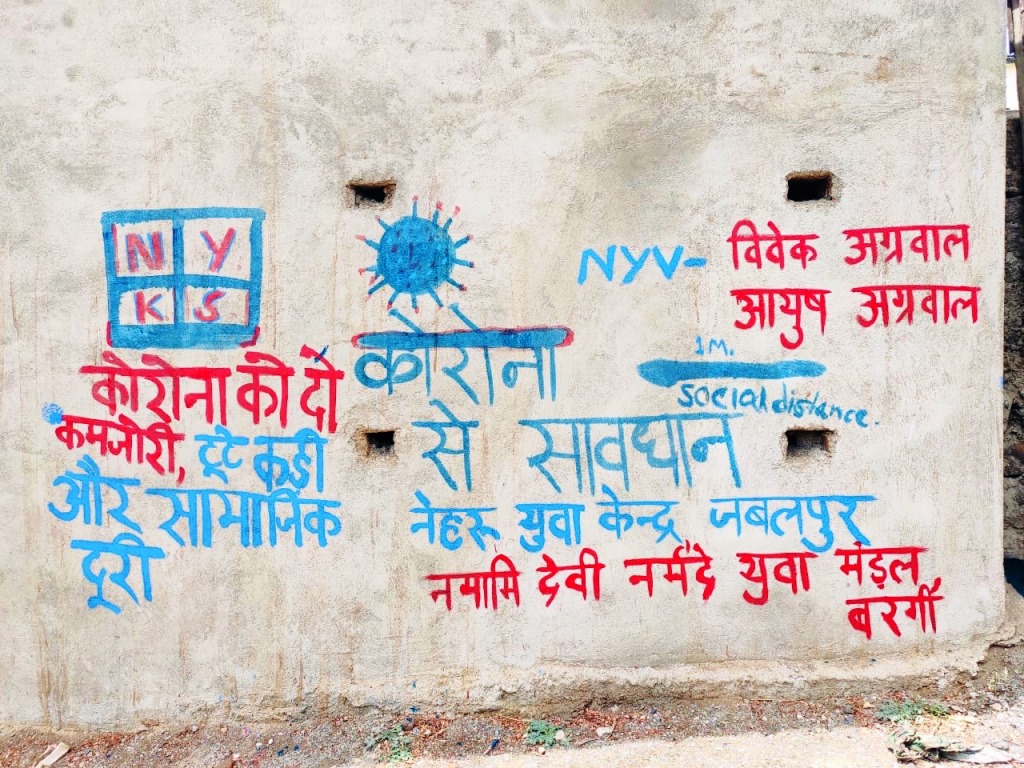 N Y
K S
कोरोना को दो
कमजोरी, टूटे कड़ी
और सामाजिक
दूरी
कोरोना
से सावधान
NYV- विवेक अग्रवाल
आयुष अग्रवाल
1 M.
social distance.
नेहरू युवा केन्द्र जबलपुर
नमामि देवी नर्मदे युवा मंडल,
बरगी